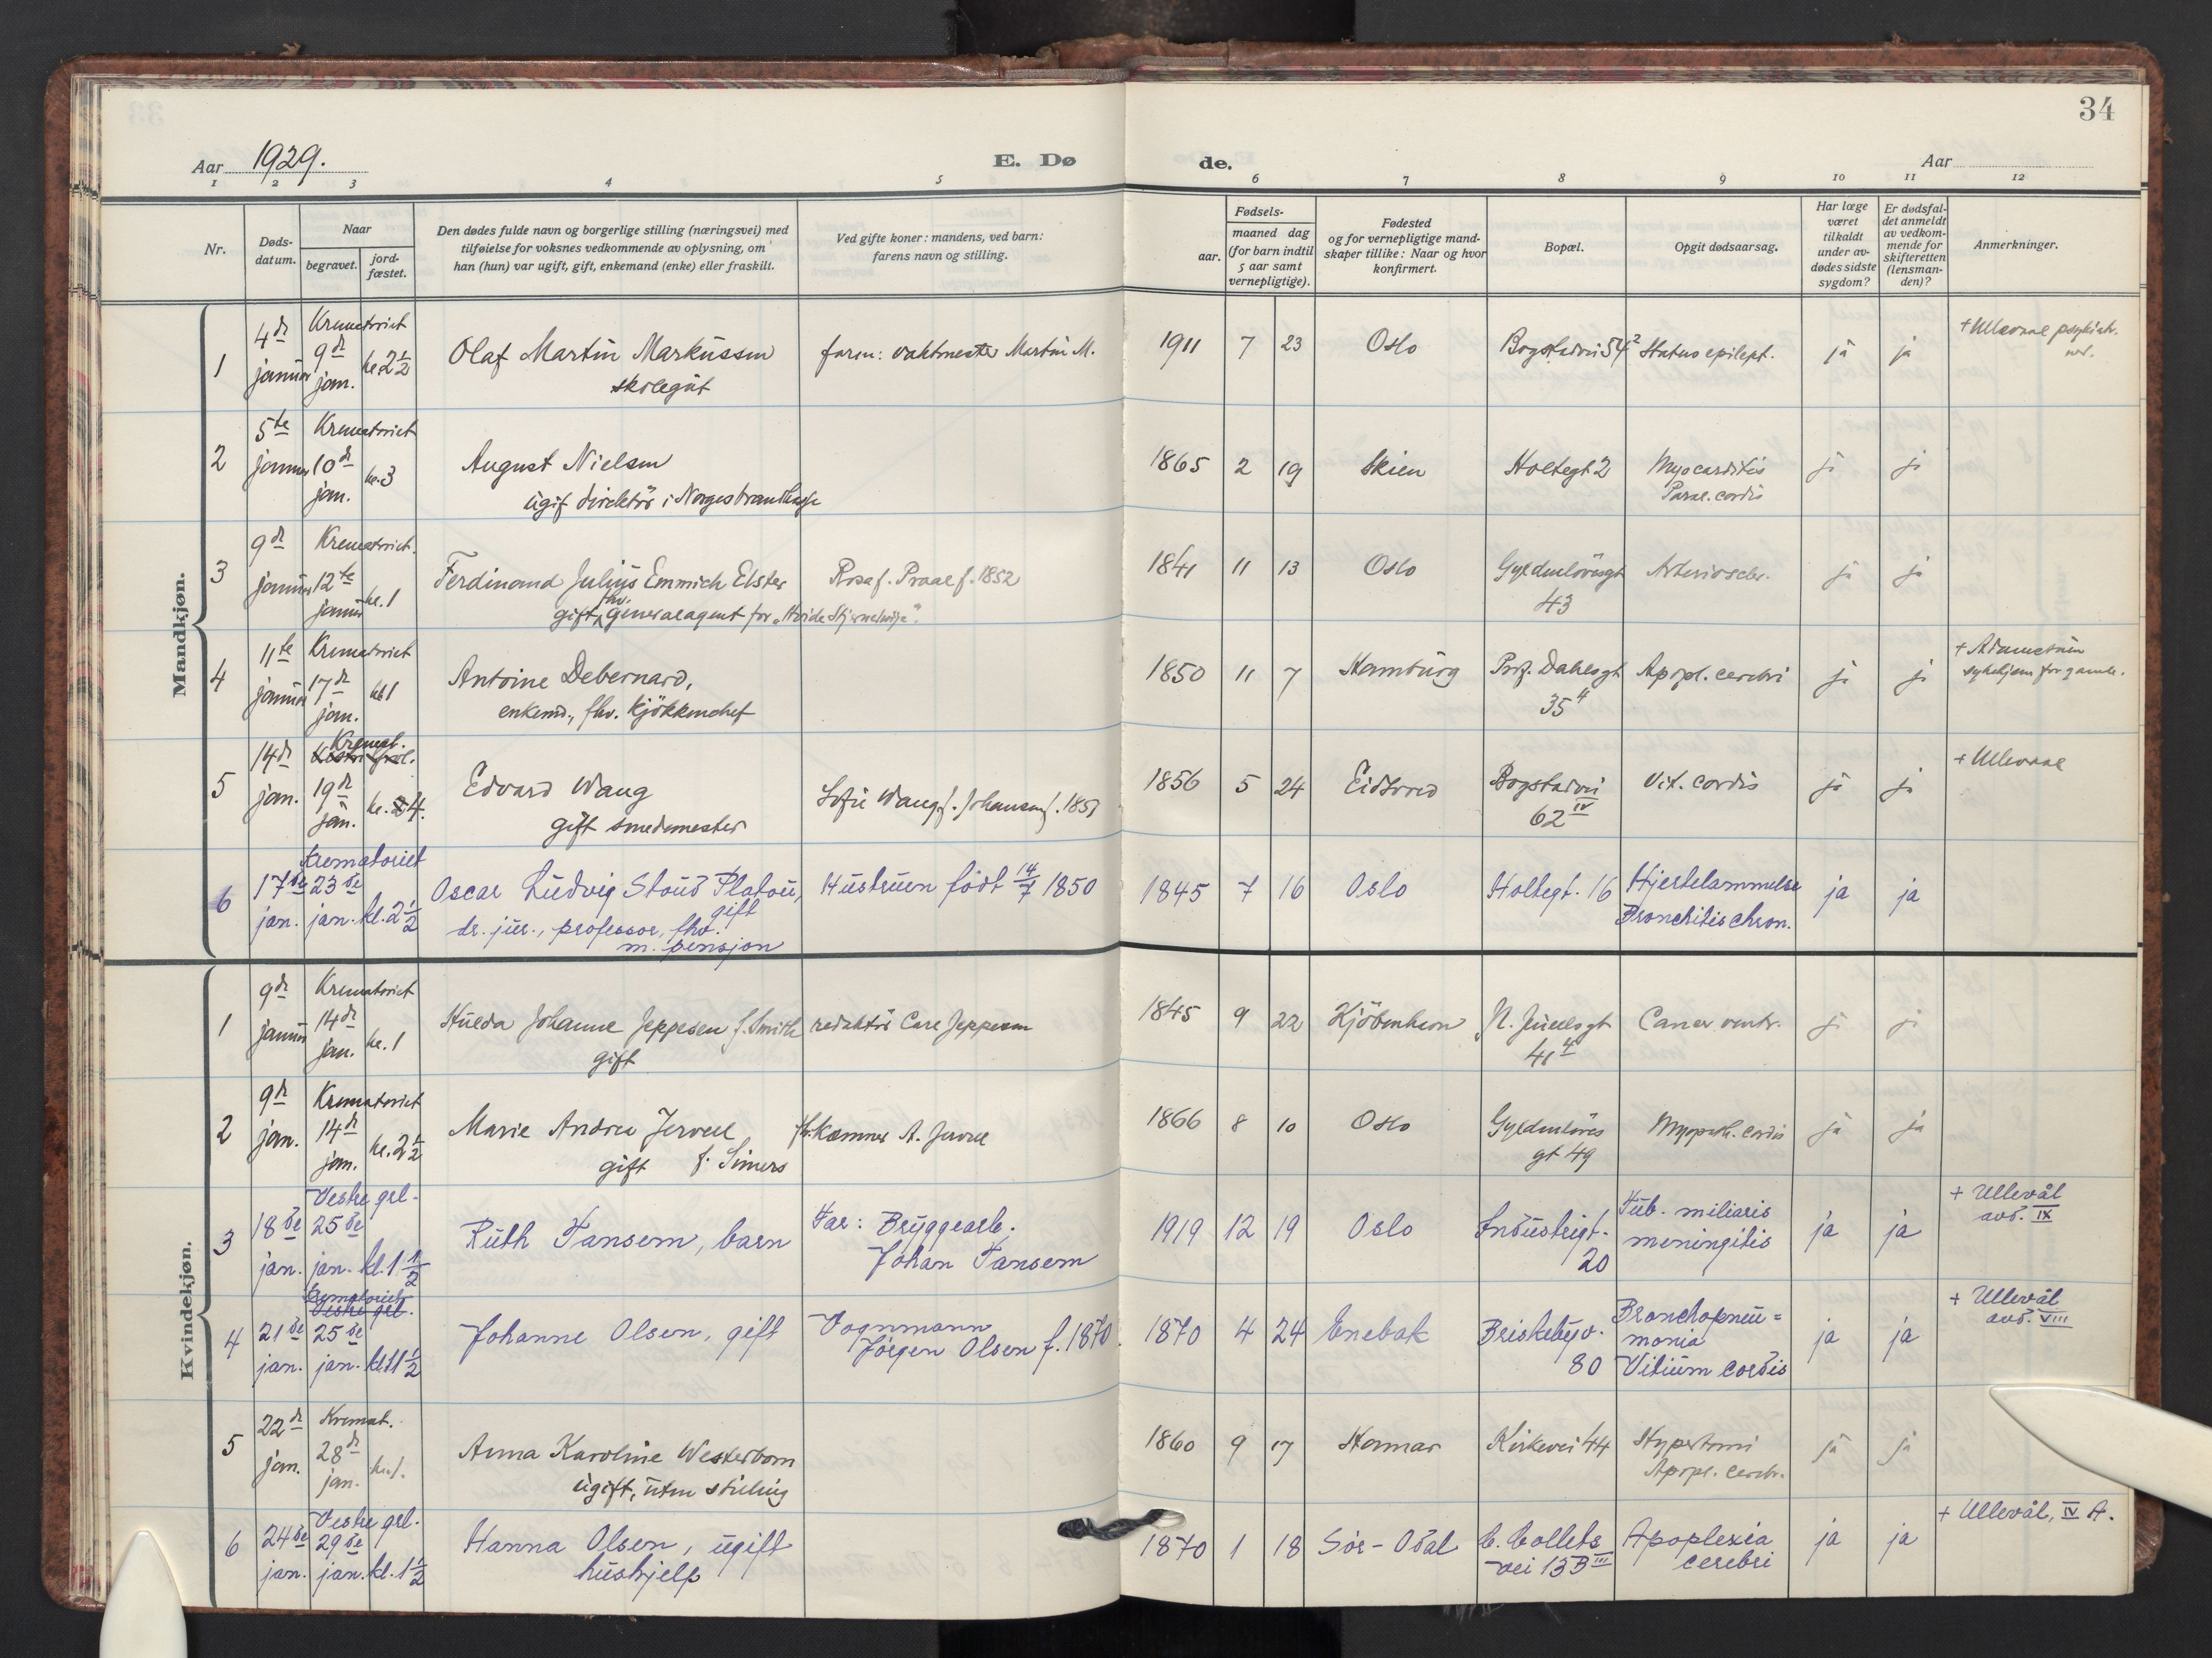 34
Aar 1929.
E. Dø
de.
Aar
1 2 3 4 5 6 7 8 9 10 11 12
Nr.
Døds-
datum.
Naar
begravet.
jord-
fæstet.
Den dødes fulde navn og borgerlige stilling (næringsvei) med
tilføielse for voksnes vedkommende av oplysning, om
han (hun) var ugift, gift, enkemand (enke) eller fraskilt.
Ved gifte koner: mandens, ved barn:
farens navn og stilling.
Fødsels-
aar.
maaned dag
(for barn indtil
5 aar samt
vernepligtige).
Fødested
og for vernepligtige mand-
skaper tillike: Naar og hvor
konfirmert.
Bopæl.
Opgit dødsaarsag.
Har læge
været
tilkaldt
under av-
dødes sidste
sygdom?
Er dødsfal-
det anmeldt
av vedkom-
mende for
skifteretten
(lensman-
den)?
Anmerkninger.
Mandkjøn.
1
4de
januar
Krematoriet
9de
jan.
kl. 2 1/2
Olaf Martin Markussen
skolegut
faren: vaktmester Martin M.
1911 7 23 Oslo
Bogstadvei 54 2
Status epilept.
ja ja
+ Ullevaal psykiatr.
2
5te
januar
Krematoriet
10de
jan.
kl. 3
August Nielsen
ugif direktör i Norges brandkasse
1865 2 19 Skien
Holtegt 2
Myocarditis
Paral. cordis
ja ja
3
9de
januar
Krematoriet.
12te
januar
kl. 1
Ferdinand Julius Emmich Elster
gift, fhv. generalagent for "Hvide Stjernelinje".
Rosa f. Praal f. 1852
1841 11 13 Oslo
Gyldenlövesgt
43
Arterioscler.
ja ja
4
11te
januar
Krematoriet
17de
jan.
kl 1
Antoine Debernard,
enkemd., fhv. kjökkenchef
1850 11 7 Hamburg
Prof. Dahlsgt
35 4
Apopl. cerebri
ja ja
+ Adamstuen
sykehjem for gamle.
5
14de
jan.
Kremat.
19de
jan.
kl. 4.
Edvard Waug
gift smedmester
Sofie Waug f. Johansen f. 185
1856 5 24 Eidsvold
Bogstadvei
62 IV
Vit. cordis
ja ja
+ Ullevaal
6
17de
jan.
Krematoriet
23de
jan.
kl. 2 1/2
Oscar Ludvig Stoud Platou,
gift
dr. jur., professor, fhv.
m. pensjon
Hustruen födt 14/7 1850
1845 7 16 Oslo
Holtegt. 16
Hjertelammelse
Bronchitis chron.
ja ja
Kvindekjøn.
1
9de
januar
Krematoriet
14de
jan.
kl. 1
Hulda Johanne Jeppesen f. Smith
gift
redaktör Carl Jeppesen
1845 9 22 Kjöbenhavn
N. Juelsgt
41 4
Cancer ventr.
ja ja
2
9de
jan.
Krematoriet
14de
jan.
kl. 2 1/2
Marie Andrea Jervell
gift f. Simers
fhv. kæmner A. Jervell
1866 8 10 Oslo
Gyldenlöves
gt 49
Myopath. cordis
ja ja
3
18de
jan.
Vestre grl.
25de
jan.
kl. 1 1/2
Ruth Fansem, barn
Far: Bryggearb.
Johan Fansem
1919 12 19 Oslo
Industrigt.
20
Tub. miliaris
meningitis
ja ja
+ Ullevål
avd. IX
4
21de
jan.
Krematoriet
Vestre grl.
25de
jan.
kl. 11 1/2
Johanne Olsen, gift
Vognmann
Jörgen Olsen f. 1870.
1870 4 24 Enebak
Briskebyv.
80
Bronchopneu=
monia
Vitium cordis
ja ja
+ Ullevål
avd. VIII
5
22de
jan.
Kremat.
28de
jan.
kl. 1.
Anna Karoline Westerborn
ugift, uten stilling
1860 9 17 Hamar
Kirkevei 44
Hypertoni
Apopl. cerebr.
ja ja
6
24de
jan.
Vestre grl.
29de
jan.
kl. 1 1/2
Hanna Olsen, ugift
hushjelp
1870 1 18 Sör-Odal
C. Collets
vei 13 B III
Apoplexia
cerebri
ja ja
+ Ullevål, IV A.